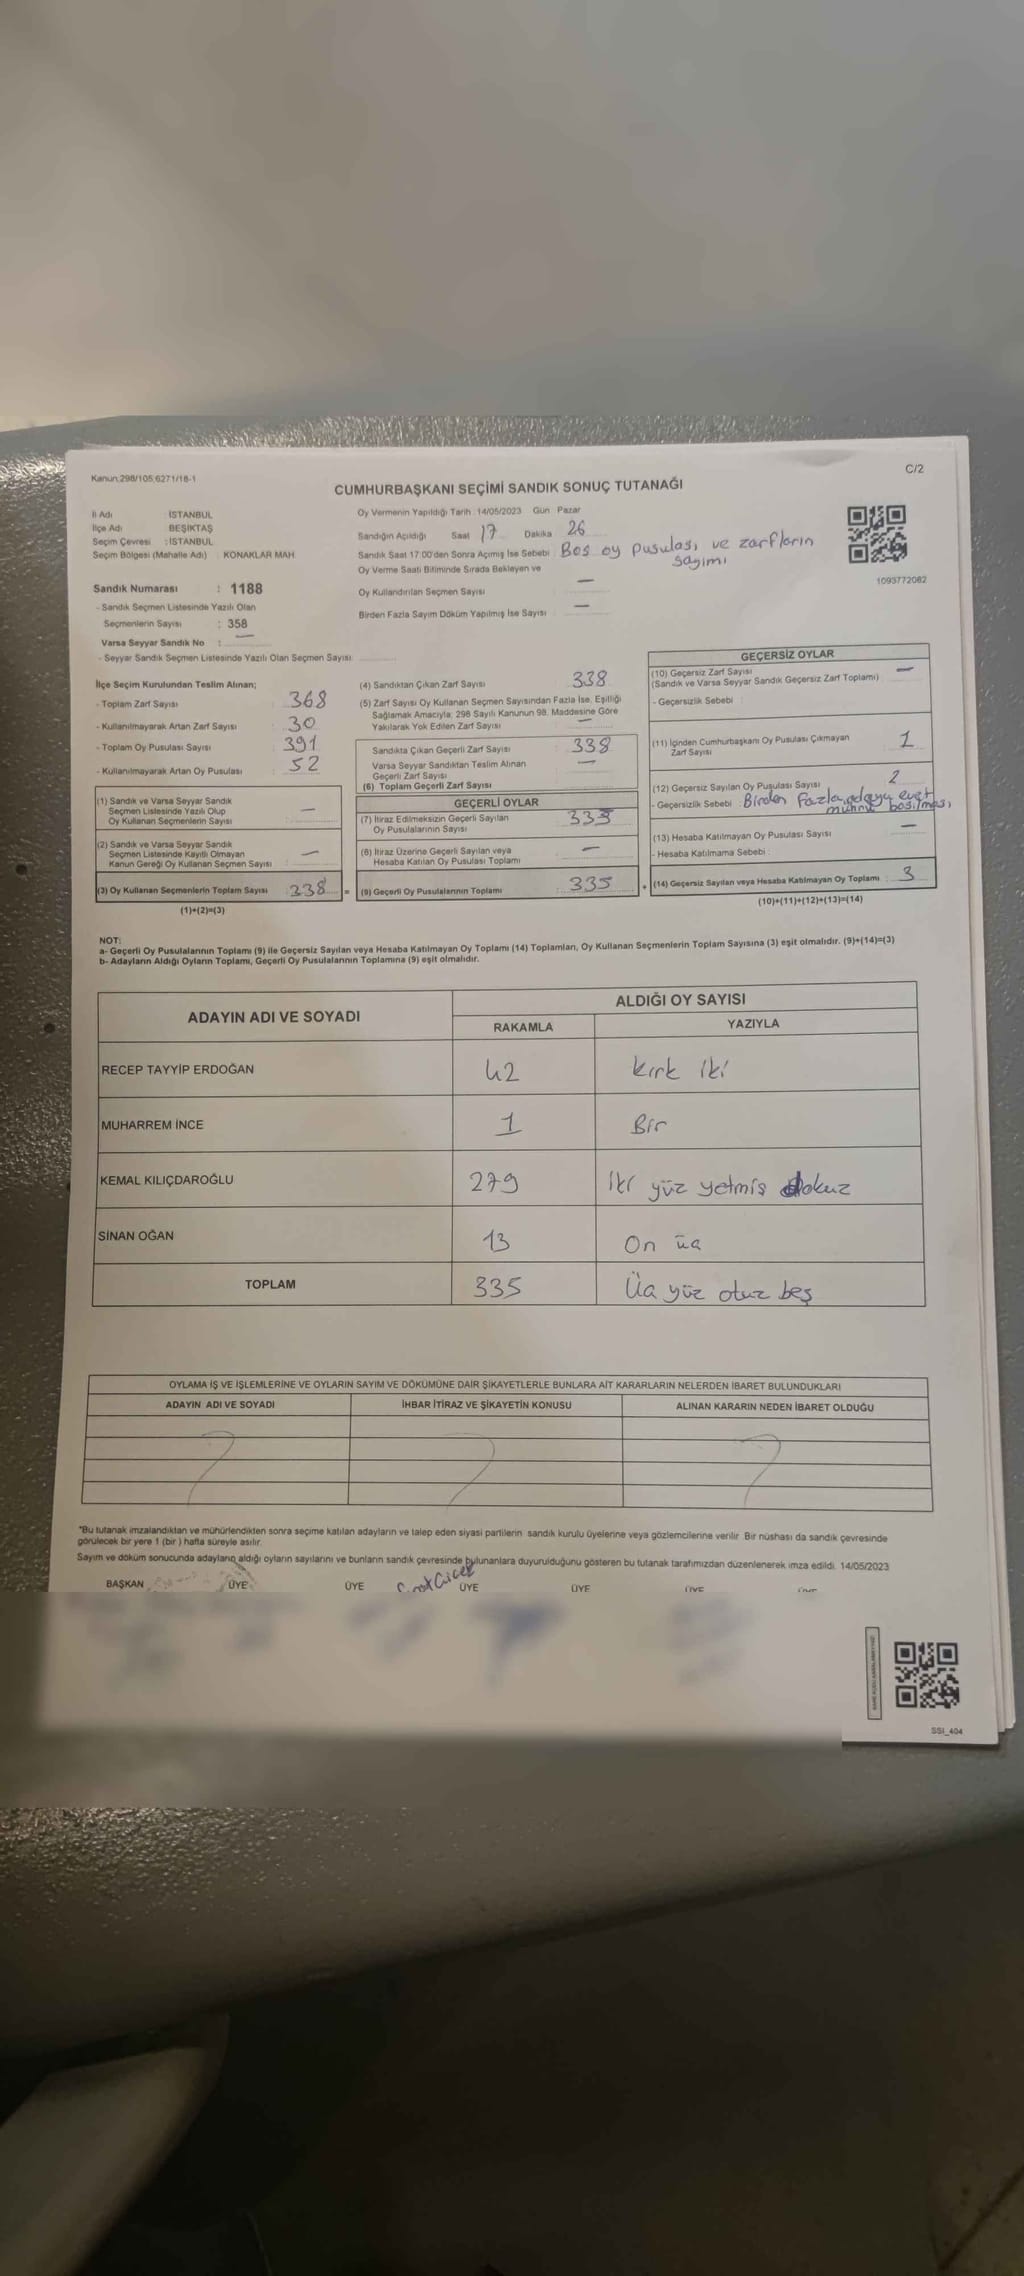 Kanun:298/105;6271/18-1
C/2
CUMHURBAŞKANI SEÇİMİ SANDIK SONUÇ TUTANAĞI
İl Adı : İSTANBUL
İlçe Adı : BEŞİKTAŞ
Seçim Çevresi : İSTANBUL
Seçim Bölgesi (Mahalle Adı) : KONAKLAR MAH
Oy Vermenin Yapıldığı Tarih : 14/05/2023 Gün : Pazar
Sandığın Açıldığı Saat 17 Dakika 26
Sandık Saat 17:00'den Sonra Açılmış İse Sebebi : Boş oy pusulası ve zarfların
sayımı
Oy Verme Saati Bitiminde Sırada Bekleyen ve
Oy Kullandırılan Seçmen Sayısı : —
Birden Fazla Sayım Döküm Yapılmış İse Sayısı : —
1093772082
Sandık Numarası : 1188
- Sandık Seçmen Listesinde Yazılı Olan
Seçmenlerin Sayısı : 358
Varsa Seyyar Sandık No : —
- Seyyar Sandık Seçmen Listesinde Yazılı Olan Seçmen Sayısı:
İlçe Seçim Kurulundan Teslim Alınan;
- Toplam Zarf Sayısı : 368
- Kullanılmayarak Artan Zarf Sayısı : 30
- Toplam Oy Pusulası Sayısı : 391
- Kullanılmayarak Artan Oy Pusulası : 52
(1) Sandık ve Varsa Seyyar Sandık
Seçmen Listesinde Yazılı Olup
Oy Kullanan Seçmenlerin Sayısı : —
(2) Sandık ve Varsa Seyyar Sandık
Seçmen Listesinde Kayıtlı Olmayan
Kanun Gereği Oy Kullanan Seçmen Sayısı : —
(3) Oy Kullanan Seçmenlerin Toplam Sayısı : 338 =
(1)+(2)=(3)
(4) Sandıktan Çıkan Zarf Sayısı : 338
(5) Zarf Sayısı Oy Kullanan Seçmen Sayısından Fazla İse, Eşitliği
Sağlamak Amacıyla; 298 Sayılı Kanunun 98. Maddesine Göre
Yakılarak Yok Edilen Zarf Sayısı : —
Sandıkta Çıkan Geçerli Zarf Sayısı : 338
Varsa Seyyar Sandıktan Teslim Alınan
Geçerli Zarf Sayısı : —
(6) Toplam Geçerli Zarf Sayısı
GEÇERLİ OYLAR
(7) İtiraz Edilmeksizin Geçerli Sayılan
Oy Pusulalarının Sayısı : 335
(8) İtiraz Üzerine Geçerli Sayılan veya
Hesaba Katılan Oy Pusulası Toplamı : —
(9) Geçerli Oy Pusulalarının Toplamı : 335 +
GEÇERSİZ OYLAR
(10) Geçersiz Zarf Sayısı : —
(Sandık ve Varsa Seyyar Sandık Geçersiz Zarf Toplamı)
- Geçersizlik Sebebi :
(11) İçinden Cumhurbaşkanı Oy Pusulası Çıkmayan
Zarf Sayısı : 1
(12) Geçersiz Sayılan Oy Pusulası Sayısı : 2
- Geçersizlik Sebebi : Birden fazla adaya evet
mührü basılması
(13) Hesaba Katılmayan Oy Pusulası Sayısı : —
- Hesaba Katılmama Sebebi :
(14) Geçersiz Sayılan veya Hesaba Katılmayan Oy Toplamı : 3
(10)+(11)+(12)+(13)=(14)
NOT:
a- Geçerli Oy Pusulalarının Toplamı (9) ile Geçersiz Sayılan veya Hesaba Katılmayan Oy Toplamı (14) Toplamları, Oy Kullanan Seçmenlerin Toplam Sayısına (3) eşit olmalıdır. (9)+(14)=(3)
b- Adayların Aldığı Oyların Toplamı, Geçerli Oy Pusulalarının Toplamına (9) eşit olmalıdır.
ADAYIN ADI VE SOYADI
ALDIĞI OY SAYISI
RAKAMLA YAZIYLA
RECEP TAYYİP ERDOĞAN 42 kırk iki
MUHARREM İNCE 1 Bir
KEMAL KILIÇDAROĞLU 279 iki yüz yetmiş dokuz
SİNAN OĞAN 13 On üç
TOPLAM 335 Üç yüz otuz beş
OYLAMA İŞ VE İŞLEMLERİNE VE OYLARIN SAYIM VE DÖKÜMÜNE DAİR ŞİKAYETLERLE BUNLARA AİT KARARLARIN NELERDEN İBARET BULUNDUKLARI
ADAYIN ADI VE SOYADI İHBAR İTİRAZ VE ŞİKAYETİN KONUSU ALINAN KARARIN NEDEN İBARET OLDUĞU
*Bu tutanak imzalandıktan ve mühürlendikten sonra seçime katılan adayların ve talep eden siyasi partilerin sandık kurulu üyelerine veya gözlemcilerine verilir. Bir nüshası da sandık çevresinde
görülecek bir yere 1 (bir) hafta süreyle asılır.
Sayım ve döküm sonucunda adayların aldığı oyların sayılarını ve bunların sandık çevresinde bulunanlara duyurulduğunu gösteren bu tutanak tarafımızdan düzenlenerek imza edildi. 14/05/2023
BAŞKAN ÜYE ÜYE ÜYE ÜYE ÜYE
SSI_404